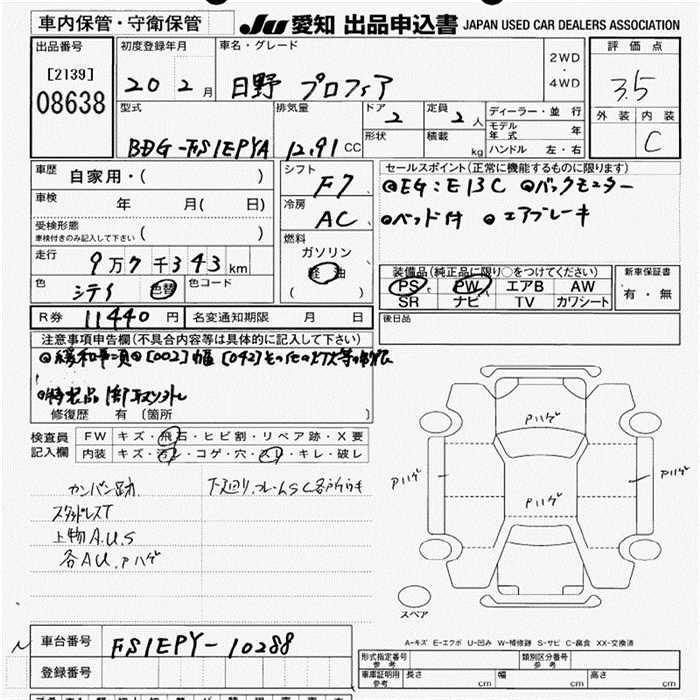 車内保管・守衛保管 JU 愛知 出品申込書 JAPAN USED CAR DEALERS ASSOCIATION
出品番号 初度登録年月 車名・グレード 2WD・4WD 評価点
[2139] 20 2月 日野 プロフィア 3.5
08638 型式 排気量 ドア 2 定員 2人 ディーラー・並行 外装 内装
モデル年式 年
形状 積載 kg ハンドル 左・右 C
BDG-FS1EPYA 12.91 CC
車歴 自家用・( ) シフト F7 セールスポイント(正常に機能するものに限ります)
◎EG:E13C ◎バックモニター
車検 年 月( 日) 冷房 AC ◎ベッド付 ◎エアブレーキ
受検形態 車検付きのみ記入して下さい ( ) 燃料
ガソリン
走行 9万7千343km 軽油 装備品(純正品に限り○をつけてください) 新車保証書
色 シロイ 色替 色コード ( ) PS PW エアB AW 有・無
SR ナビ TV カワシート
R券 11440円 名変通知期限 月 日 後日品
注意事項申告欄(不具合内容等は具体的に記入して下さい)
◎緩和事項◎[002]幅
修復歴 有 (箇所 )
検査員記入欄 FW キズ・飛石・ヒビ割・リペア跡・X要
内装 キズ・汚レ・コゲ・穴・スレ・キレ・破レ
カンバン跡
スタッドレスT
上物A.U.S
各AU.Pハゲ
Pハゲ
Pハゲ Pハゲ
Pハゲ
スペア
車台番号 FS1EPY-10288
A-キズ E-エクボ U-凹み W-補修跡 S-サビ C-腐食 XX-交換済
登録番号 形式指定番号 参考 類別区分番号 参考
車庫証明用 参考 長さ cm 幅 cm 高さ cm